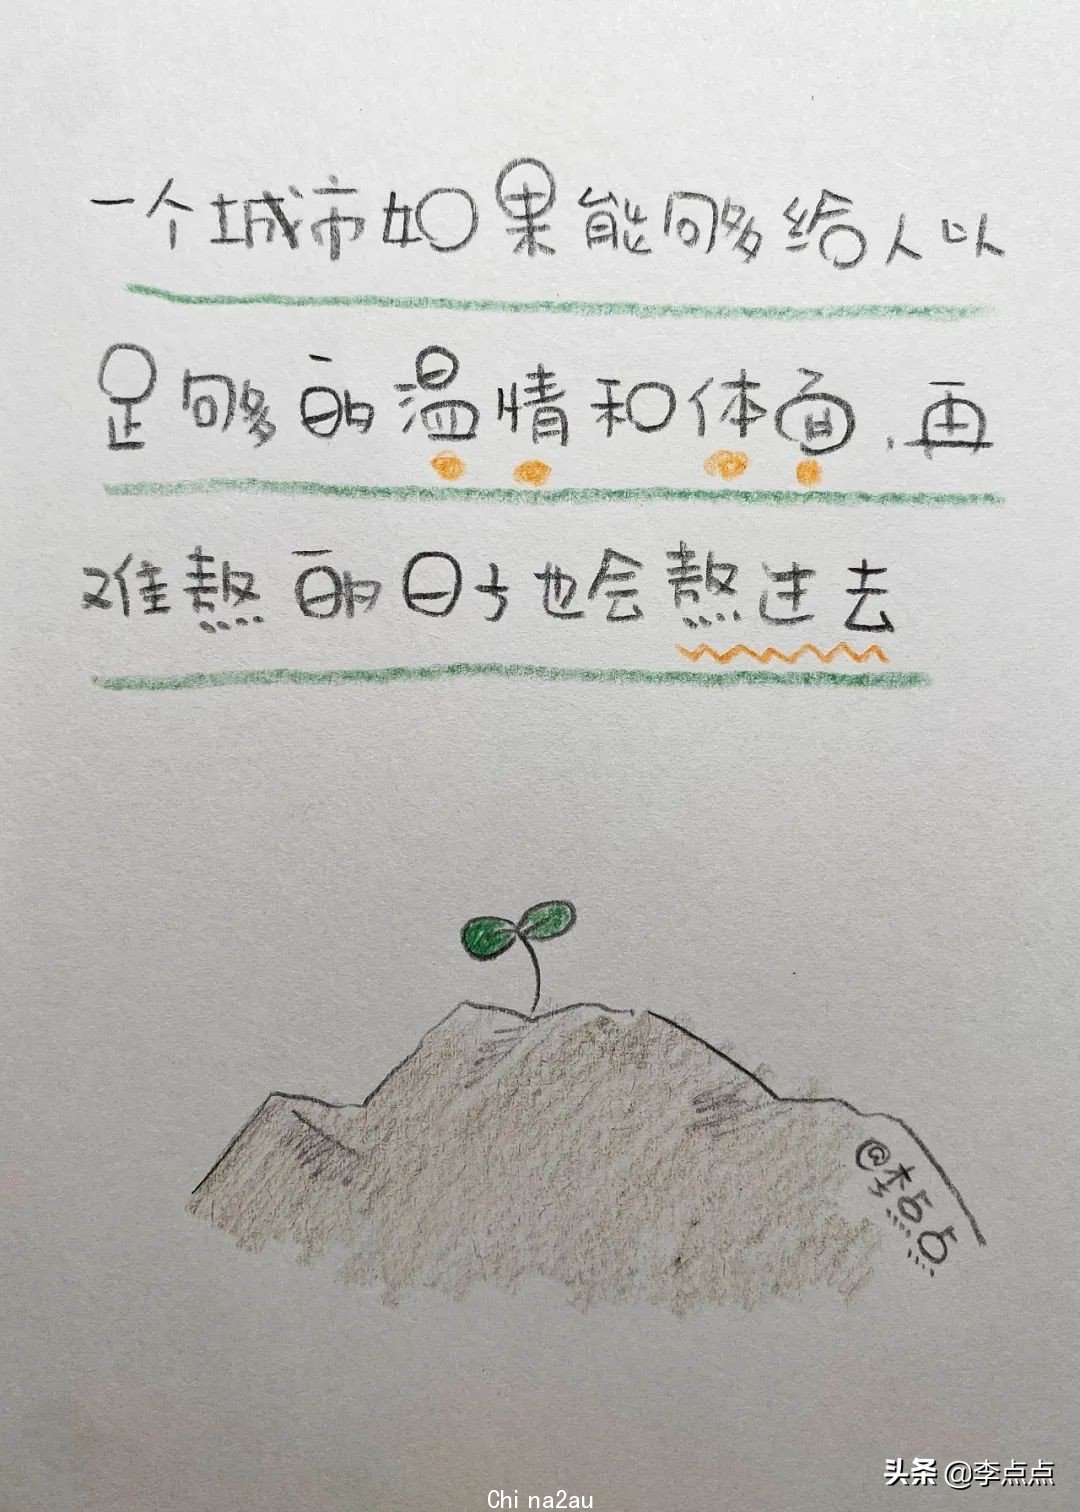 一个城市如果能够给人以
足够的温情和体面,再
难熬的日子也会熬过去
@李点点
头条 @李点点
Chi na2au